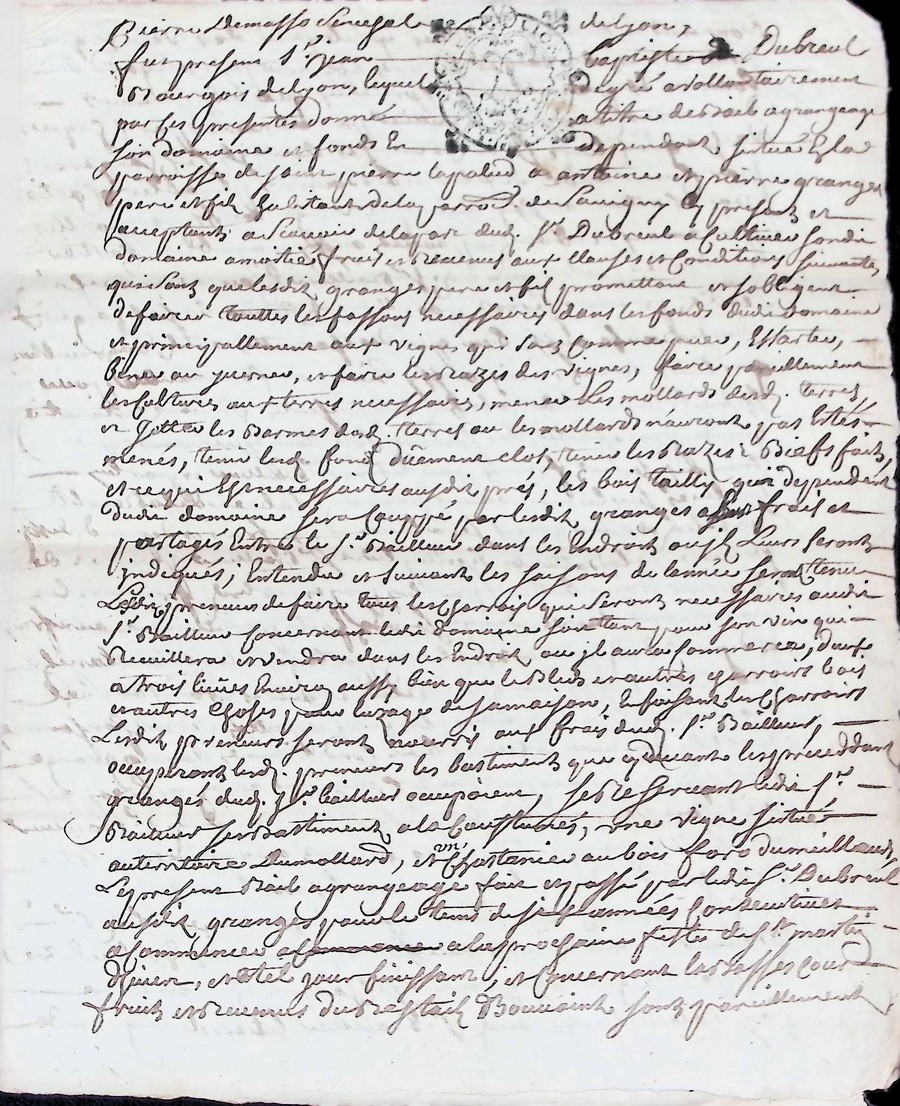 Pierre Demasso Senegal de Lyon,
fut present Sr. jean baptiste Dubreul
Bourgois de Lyon, lequel de gré a vollontairement
par Ces presentes donné a titre de Bail a grangeage
son domaine et fonds En dependant situé En la
parroisse de saint pierre lapalud a antoine et pierre granges
pere et filz habitants de la parroisse de Savigny Cy presents et
acceptants a Scavoir de la part dud. Sr. Dubreul a Cultiver sondit
domaine a moitié fruits et Revenus aux Clauses et Conditions suivantes
qui sont que lesdits granges pere et filz promettent et sobligent
de faire touttes les fassons necessaires dans les fonds dudit domaine
et principallement aux vignes qui sont Comme puer, Essarter, -
biner au , et faire les Razes des vignes, faire pareillement
les Cultures aux terres necessaires, mener Les mollards desd. terres,
et Jetter les Barmes desd. terres ou les mollards nauront pas Estés
menés, tenir lesd. fonds düement clos, tenir les Razes & Biefs faits,
et ce qui Est necessaires ausdits prés, les bois taillis qui dependent
dudit domaine sera Couppé par lesdits granges a leurs frais et
partagés Entre le Sr. Bailleur dans les Endroits ou jl Leurs seront
indiqués, Entendu et suivant les saisons de lannée seront tenus
Lesdits preneurs de faire tous les Charrois qui seront necessaires audit
Sr. Bailleur Concernant ledit domaine soit tant pour son vin qui -
Recuillera et vendra dans les Endroits ou jl aura Commerce, deux
a trois lieües Environ aussy bien que le Bled et autres charroirs bois
et autres Choses pour luzage de sa maison, En faisant les Charroirs
Lesdits preneurs seront nourris aux frais dud. Sr. Bailleur, -
occupperont lesd. preneurs les bastiments que cydevant les preceddant
grangés dud. Sr. bailleur occupoient, se Reservant ledit Sr. -
Bailleur ses Bastiments a la Coustumés, une vigne situés
au territoire Dumollard, et un Chastanier au bois
Le present Bail a grangeage fait et passé par ledit Sr. Dubreul
ausdits granges pour le tems de six années Consecutives
a Commencer a la prochaine feste de St. martin
dhiver, et a tel jour finissant, et Concernant la Basse Cour
fruits et Revenus du Bestail sont pareillement